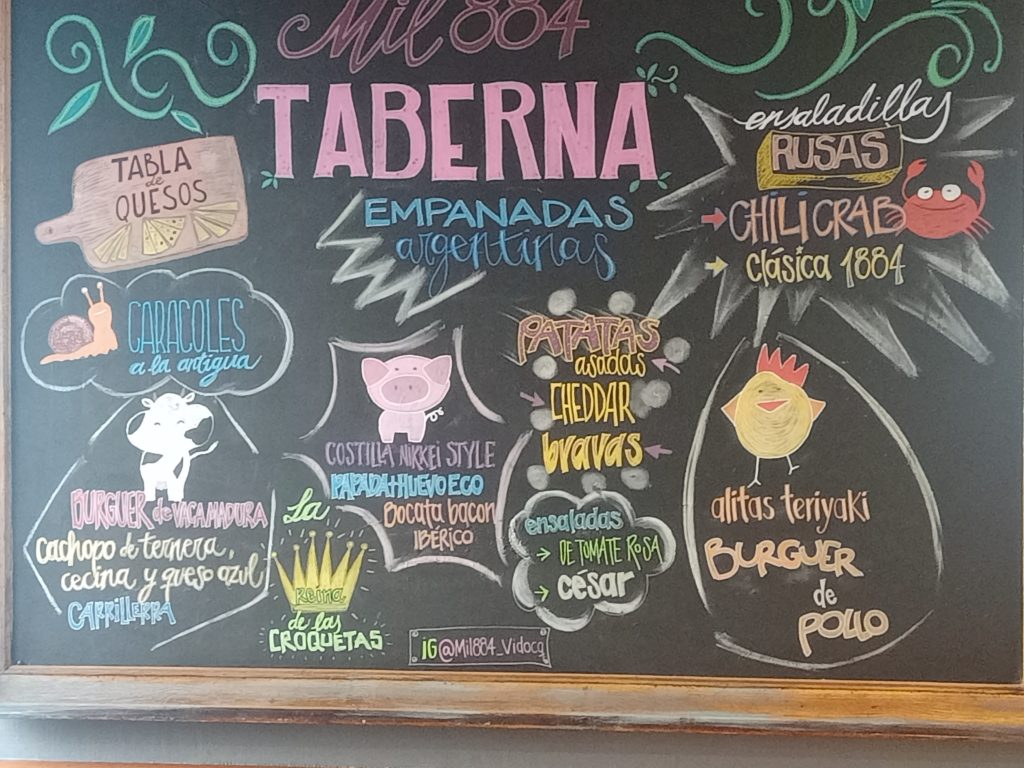 Mil 884
TABERNA
TABLA
de
QUESOS
EMPANADAS
argentinas
ensaladillas
RUSAS
CHILI CRAB
clásica 1884
CARACOLES
a la antigua
PATATAS
asadas
CHEDDAR
bravas
BURGUER de VACA MADURA
cachopo de ternera,
cecina y queso azul
CARRILLERRA
COSTILLA NIKKEI STYLE
PAPADA+HUEVO ECO
Bocata bacon
IBÉRICO
La
Reina
de las
CROQUETAS
ensaladas
DE TOMATE ROSA
césar
alitas teriyaki
BURGUER
de
POLLO
IG@Mil884_Vidocq